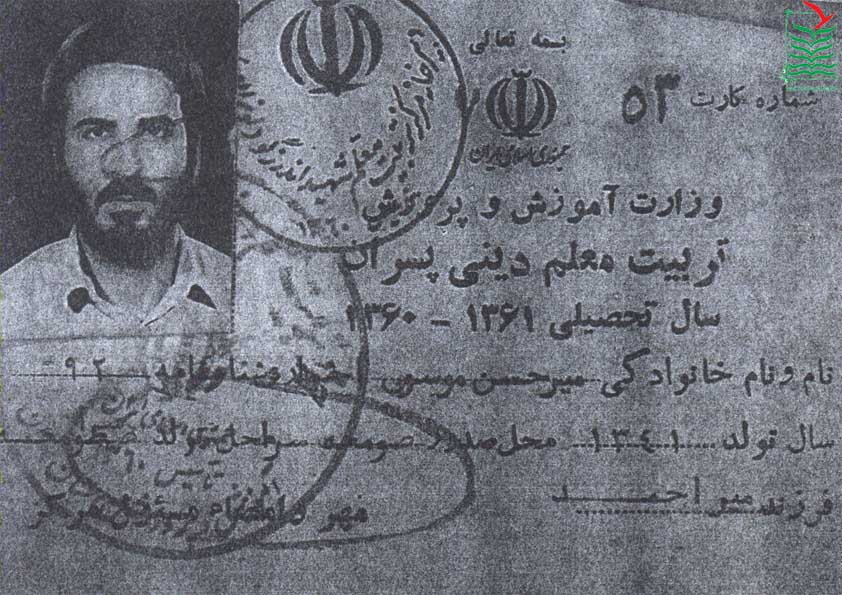 بسمه تعالی
جمهوری اسلامی ایران
شماره کارت ۵۳
وزارت آموزش و پرورش
تربیت معلم دینی پسران
سال تحصیلی ۱۳۶۱ - ۱۳۶۰
نام و نام خانوادگی میرحسن موسوی شماره شناسنامه ۹۲
سال تولد ۱۳۴۱ محل صدور صومعه سرا محل تولد
فرزند میر احمد
مهر و امضاء مسئول مرکز
تربیت معلم شهید
۱۳۶۰